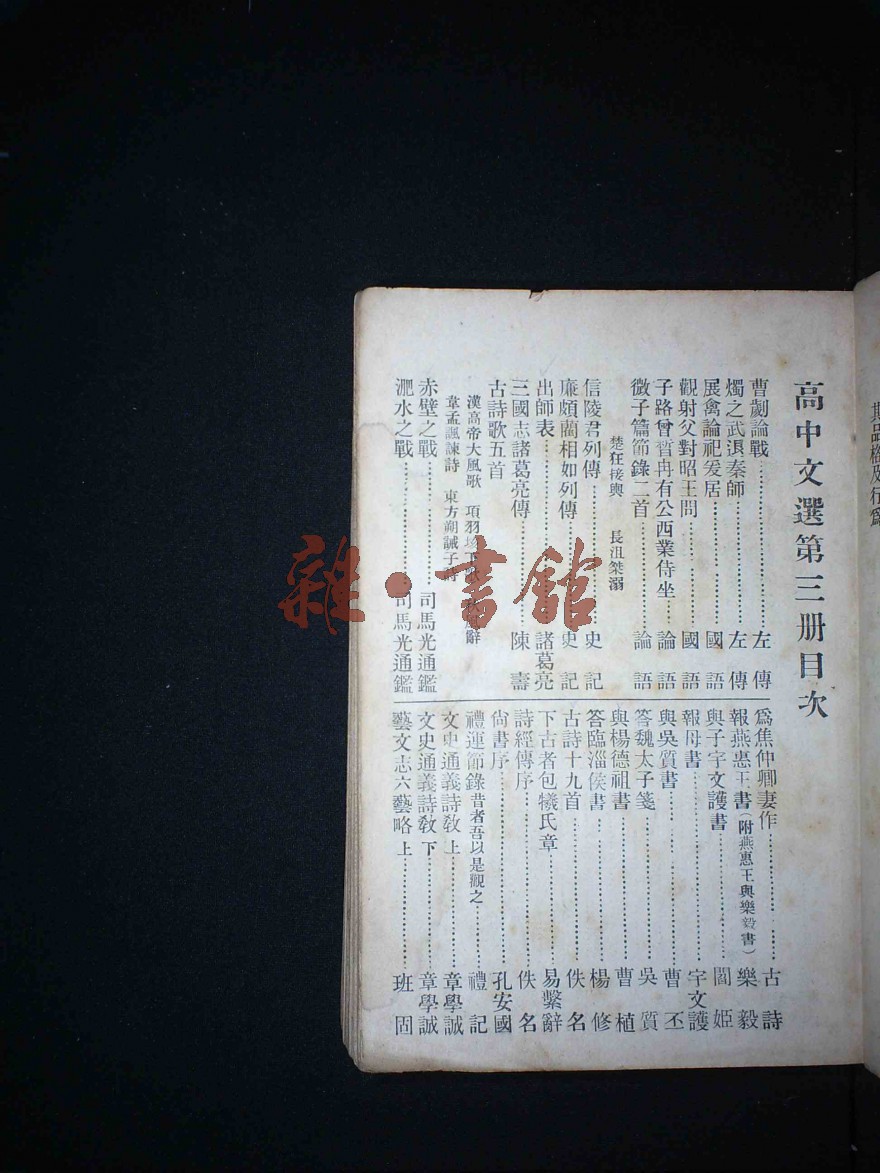 高中文選第三册目次
曹劌論戰……左傳
燭之武退秦師……左傳
展禽論祀爰居……國語
觀射父對昭王問……國語
子路曾晳冉有公西華侍坐……論語
微子篇節錄二首……論語
楚狂接輿 長沮桀溺
信陵君列傳……史記
廉頗藺相如列傳……史記
出師表……諸葛亮
三國志諸葛亮傳……陳壽
古詩歌五首
漢高帝大風歌 項羽垓下歌 秋風辭
韋孟諷諫詩 東方朔誡子詩
赤壁之戰……司馬光通鑑
淝水之戰……司馬光通鑑
爲焦仲卿妻作……古詩
報燕惠王書(附燕惠王與樂毅書)……樂毅
與子宇文護書……閻姬
報母書……宇文護
與吳質書……曹丕
答魏太子箋……吳質
與楊德祖書……曹植
答臨淄侯書……楊修
古詩十九首……佚名
下古者包犧氏章……易繫辭
詩經傳序……佚名
尙書序……孔安國
禮運節錄昔者吾以是觀之……禮記
文史通義詩敎上……章學誠
文史通義詩敎下……章學誠
藝文志六藝略上……班固
品格及行爲
雜·書館